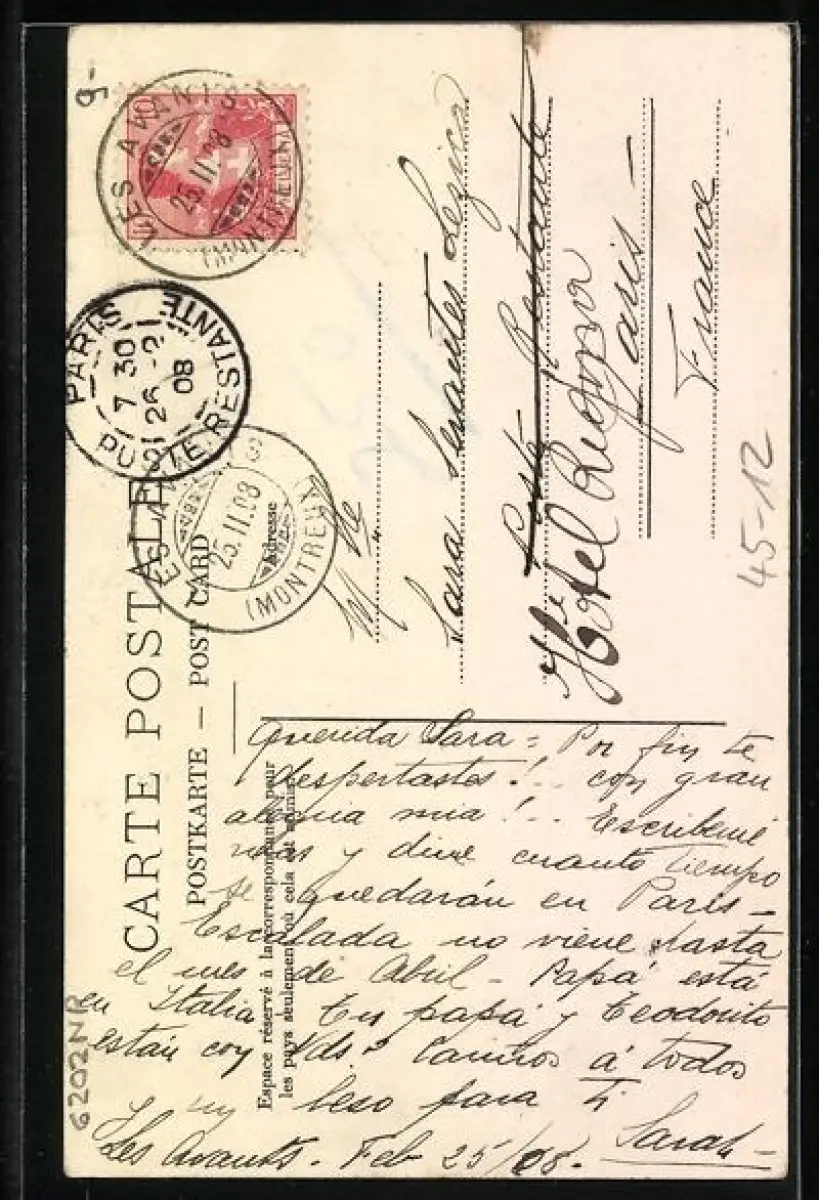 CARTE POSTALE
POSTKARTE — POST CARD
Espace réservé à la correspondance pour
les pays seulement où cela est admis
Adresse
g-
10
LES AVANTS
25.II.08
(MONTREUX)
PARIS
7 30
26-2
08
POSTE RESTANTE
LES AVANTS
25.II.08
(MONTREUX)
Mlle
Sara Serantes Lezica
Poste Restante
Hôtel Regina
Paris —
France
45-12
6202NR
Querida Sara = Por fin te
despertastes!.. con gran
alegria mia!.. Escribeme
mas y dime cuanto tiempo
se quedarán en Paris —
Escalada no viene hasta
el mes de Abril — Papá está
en Italia — Tu papá y Teodorito
están con Vds? Cariños á todos
un beso para ti
Sarah —
Les Avants. Feb 25/08.